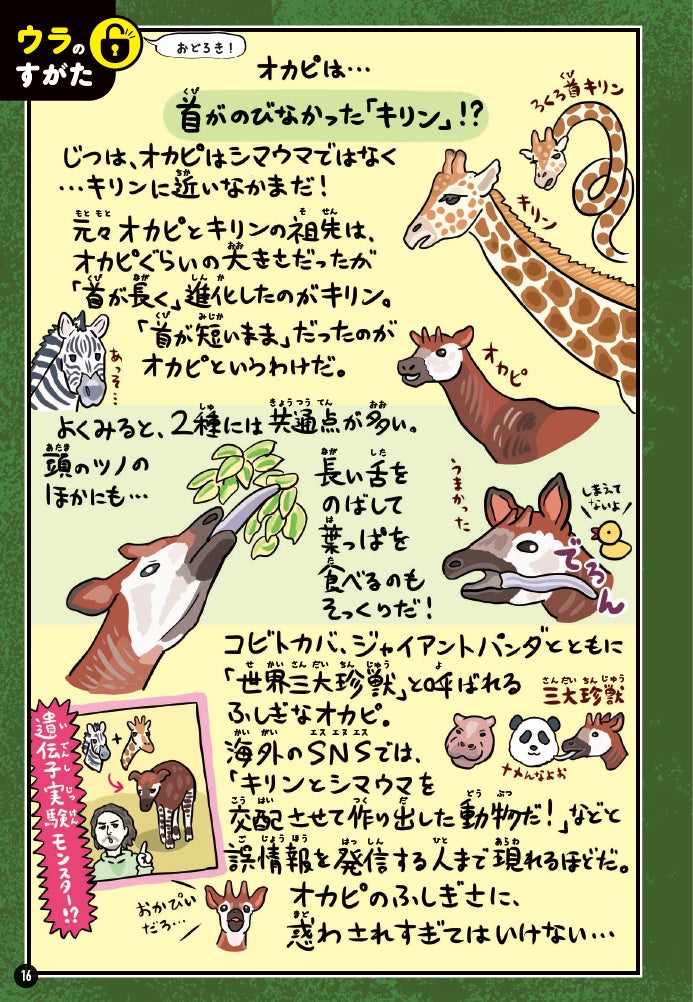 ウラの
すがた
おどろき!
オカピは…
首がのびなかった「キリン」!?
ろくろ首キリン
じつは、オカピはシマウマではなく
…キリンに近いなかまだ!
キリン
元々オカピとキリンの祖先は、
オカピぐらいの大きさだったが
「首が長く」進化したのがキリン。
「首が短いまま」だったのが
オカピというわけだ。
あっそ…
オカピ
よくみると、2種には共通点が多い。
頭のツノの
ほかにも…
長い舌を
のばして
葉っぱを
食べるのも
そっくりだ!
うまかった
しまえて
ないよ
でろん
コビトカバ、ジャイアントパンダとともに
「世界三大珍獣」と呼ばれる
ふしぎなオカピ。
三大珍獣
ナメんなよお
海外のSNSでは、
「キリンとシマウマを
交配させて作り出した動物だ!」などと
誤情報を発信する人まで現れるほどだ。
遺伝子実験モンスター!?
+
おかぴい
だろ…
オカピのふしぎさに、
惑わされすぎてはいけない…
16